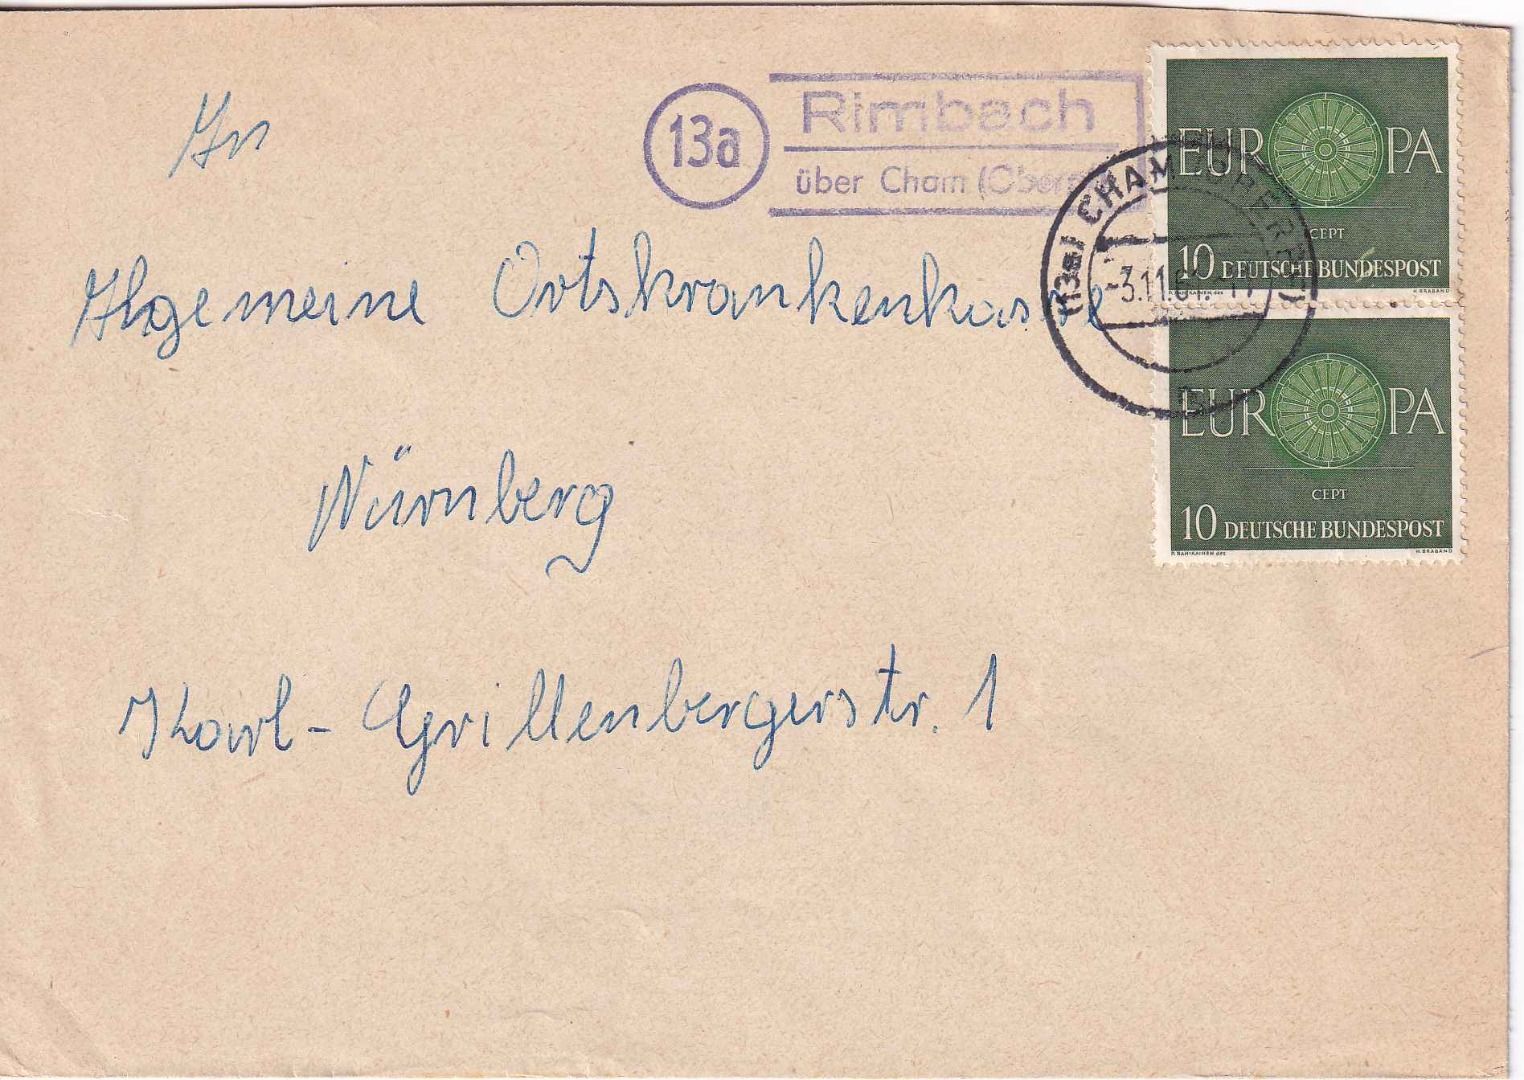 An
Allgemeine Ortskrankenkasse
Nürnberg
Karl-Grillenbergerstr. 1
13a
Rimbach
über Cham
(13a) CHAM (OBERPF)
-3.11.61.
EUROPA
CEPT
10 DEUTSCHE BUNDESPOST
H. BRABAND
EUROPA
CEPT
10 DEUTSCHE BUNDESPOST
H. BRABAND